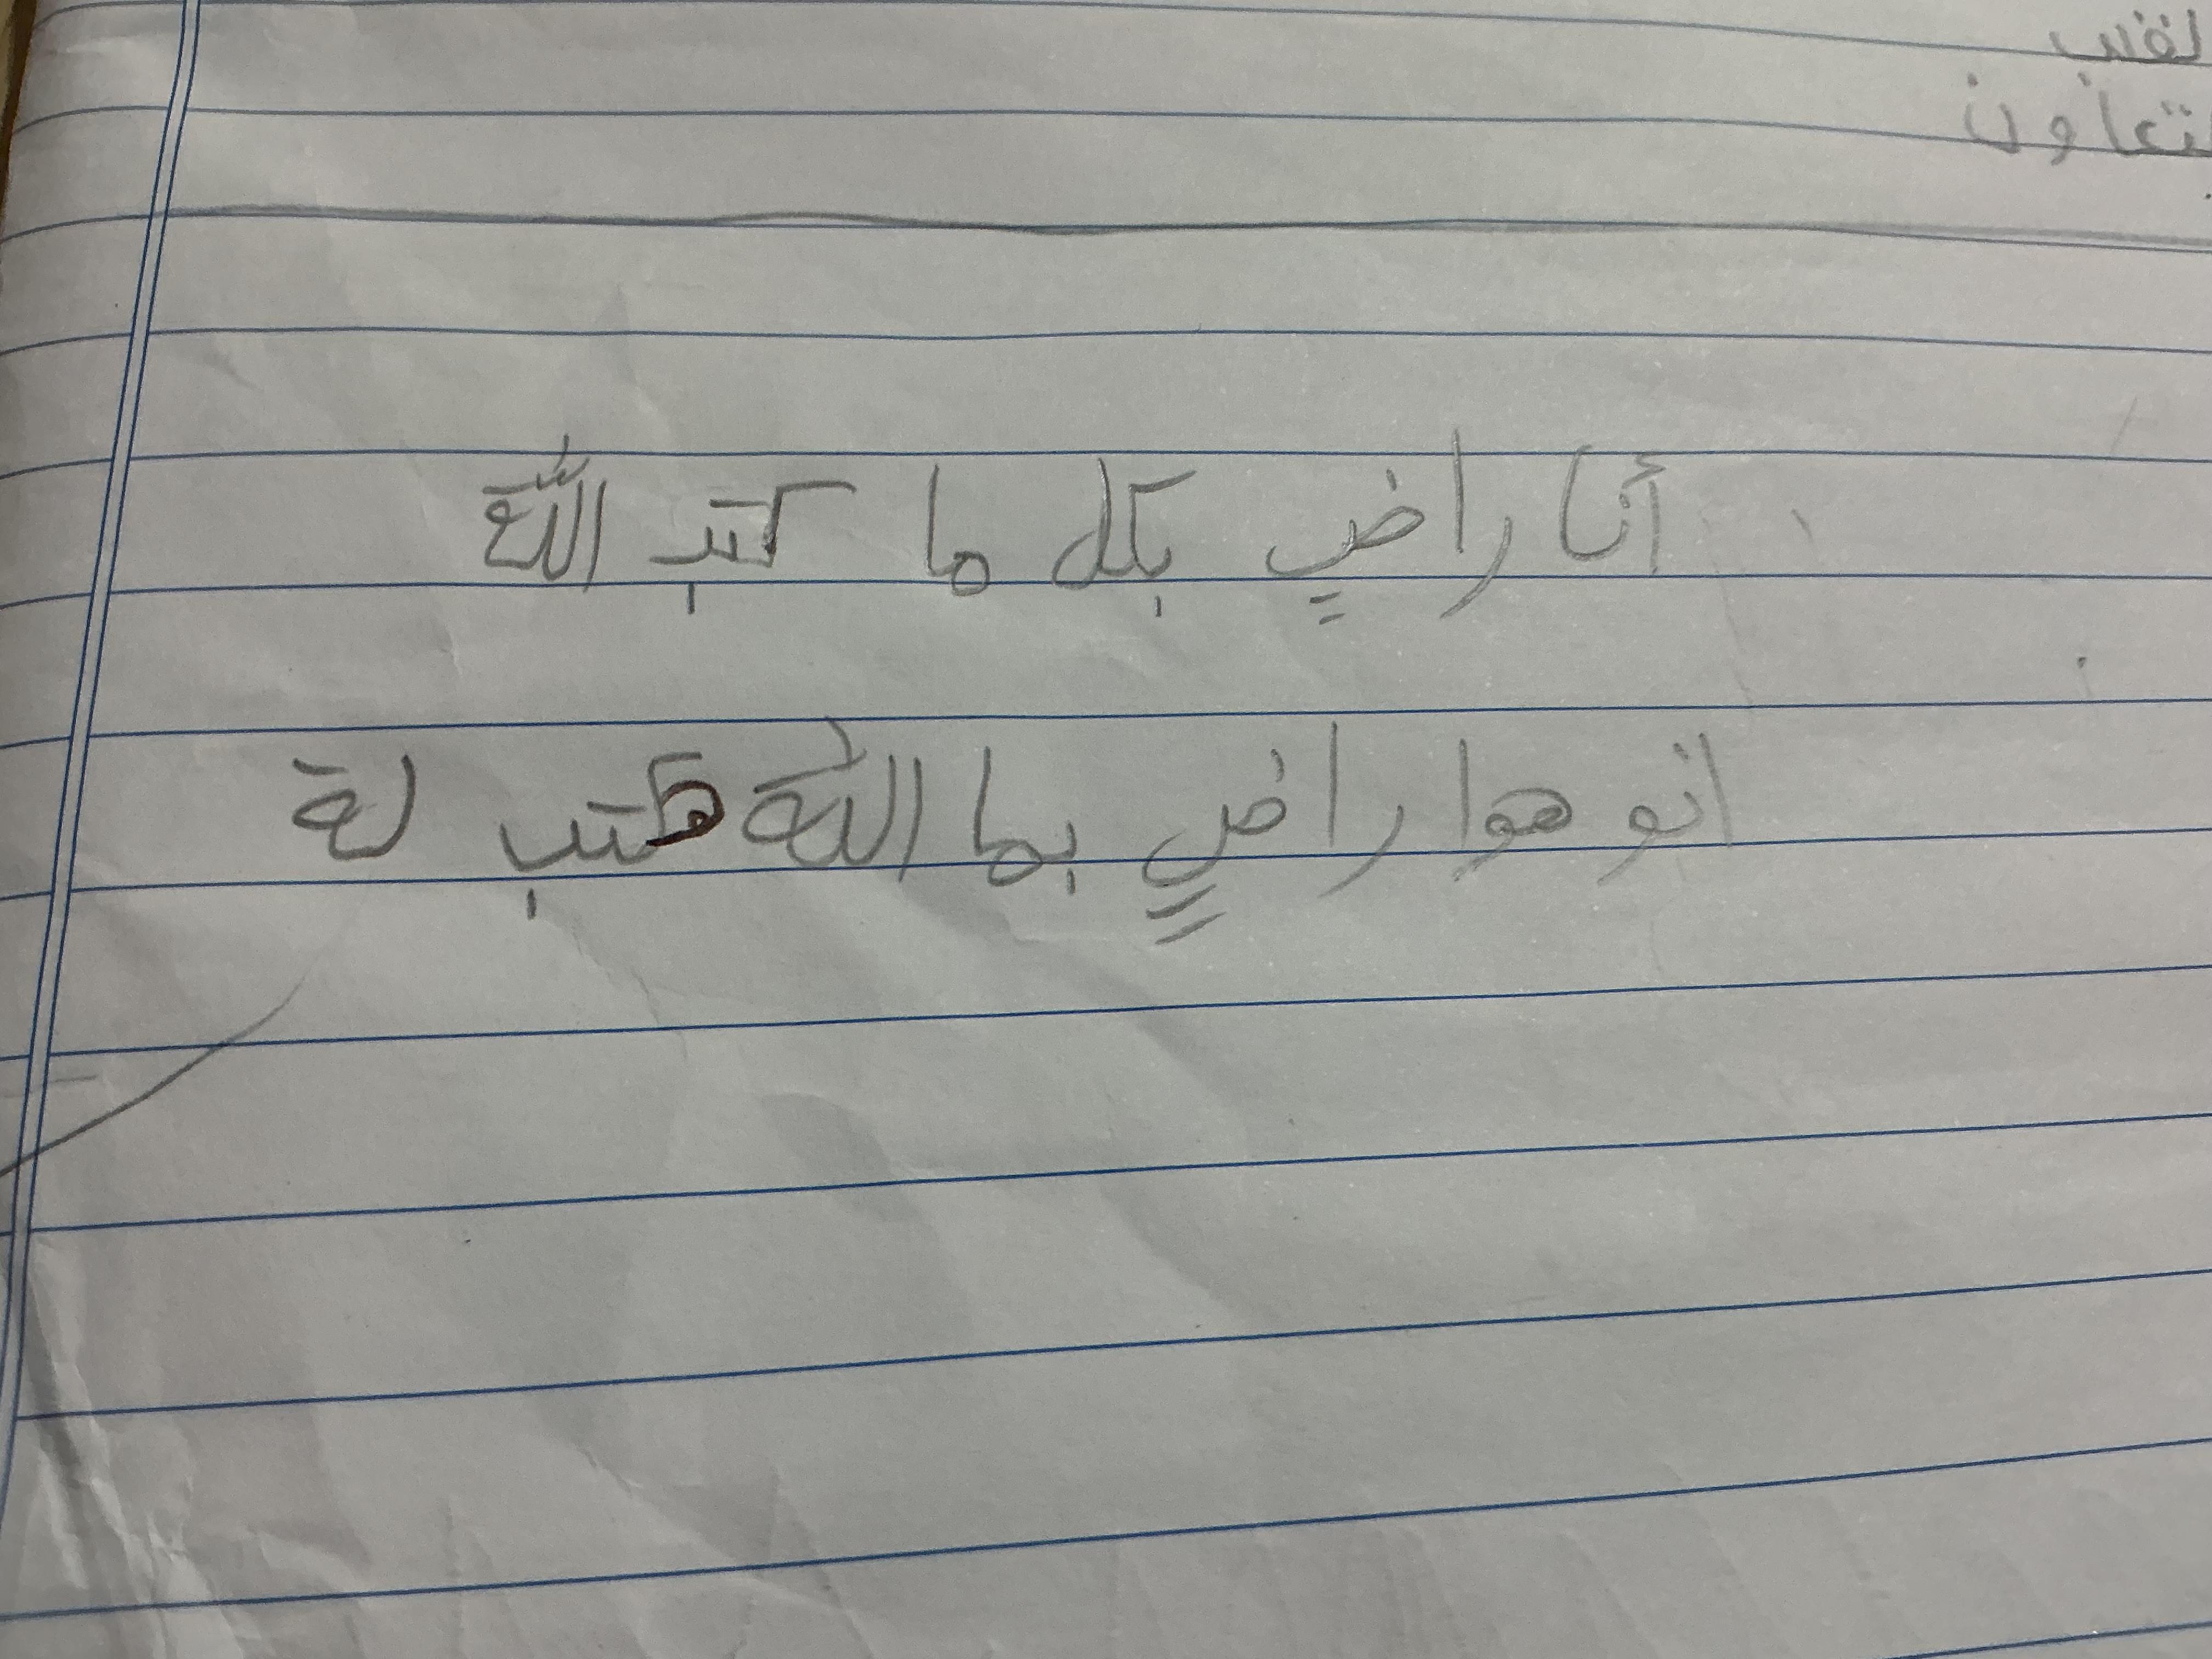 لفئب
تعاون
أنا راضي بكل ما كتب اللّٰة
انو هوا راضي بما اللّٰة كتب لة